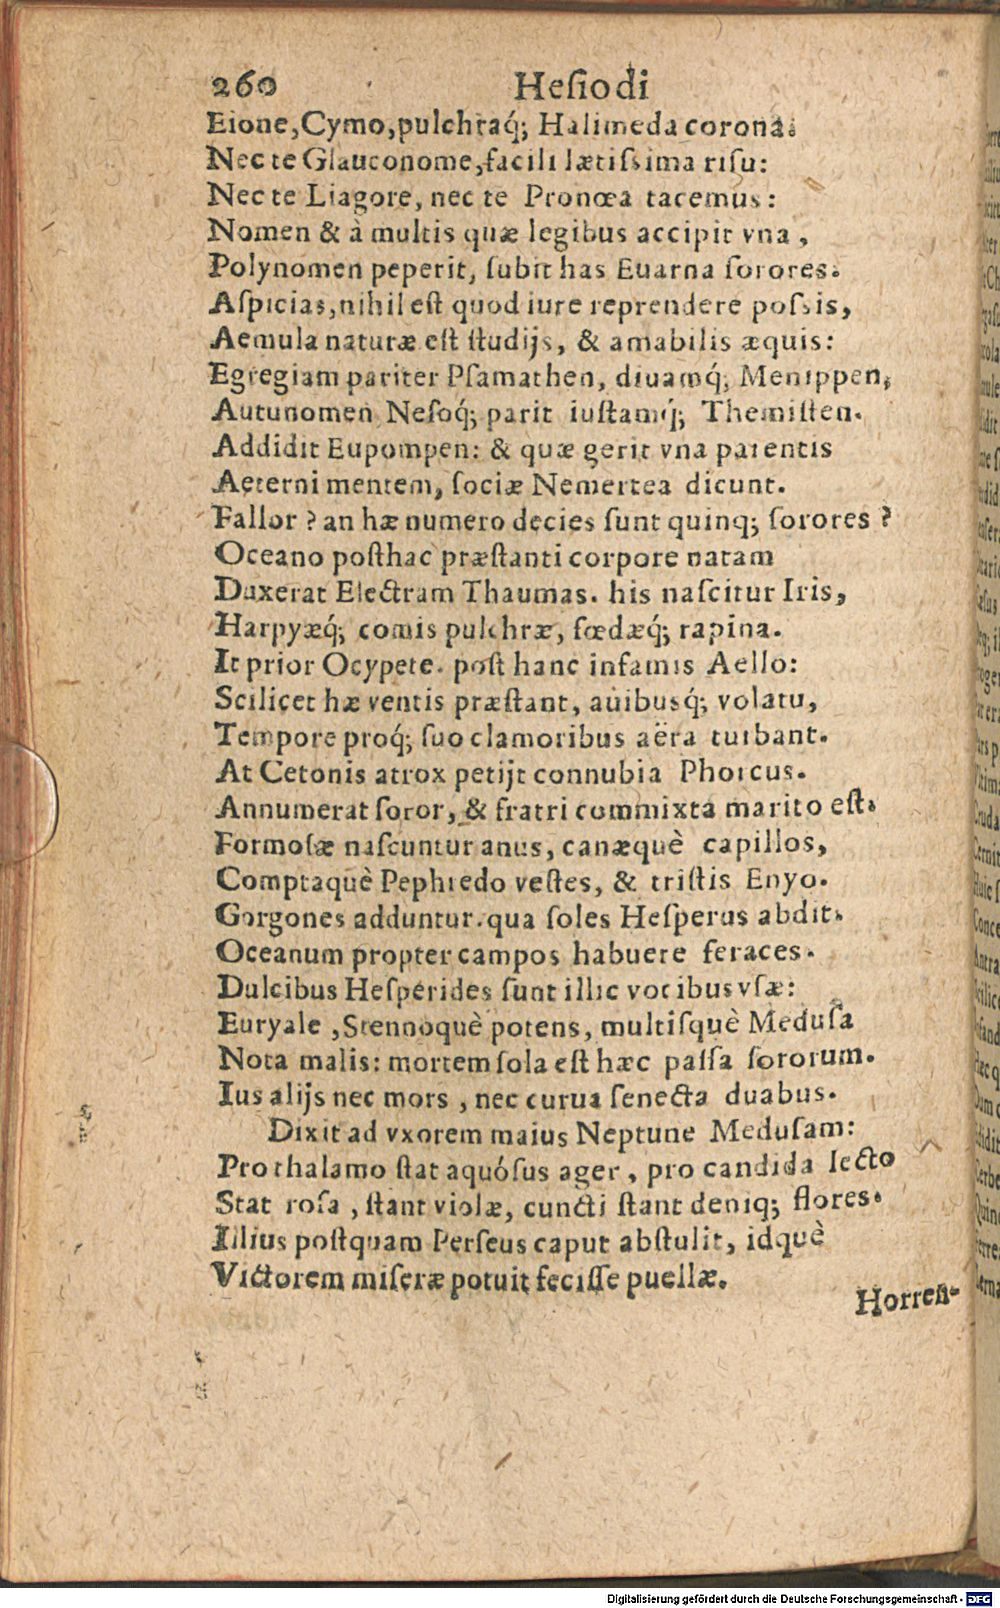 260 Heſiodi
Eione, Cymo, pulchraq́; Halimeda corona:
Nec te Glauconome, facili lætiſsima riſu:
Nec te Liagore, nec te Pronœa tacemus:
Nomen & à multis quæ legibus accipit vna,
Polynomen peperit, ſubit has Euarna ſorores.
Aſpicias, nihil eſt quod iure reprendere poſsis,
Aemula naturæ eſt ſtudijs, & amabilis æquis:
Egregiam pariter Pſamathen, diuamq́; Menippen,
Autunomen Neſoq́; parit iuſtamq́; Themiſten.
Addidit Eupompen: & quæ gerit vna parentis
Aeterni mentem, ſociæ Nemertea dicunt.
Fallor? an hæ numero decies ſunt quinq; ſorores?
Oceano poſthac præſtanti corpore natam
Duxerat Electram Thaumas. his naſcitur Iris,
Harpyæq́; comis pulchræ, fœdæq́; rapina.
It prior Ocypete. poſt hanc infamis Aello:
Scilicet hæ ventis præſtant, auibusq́; volatu,
Tempore proq́; ſuo clamoribus aëra turbant.
At Cetonis atrox petijt connubia Phorcus.
Annumerat ſoror, & fratri commixta marito eſt.
Formoſæ naſcuntur anus, canæquè capillos,
Comptaquè Pephredo veſtes, & triſtis Enyo.
Gorgones adduntur. qua ſoles Heſperus abdit.
Oceanum propter campos habuere feraces.
Dulcibus Heſperides ſunt illic vocibus vſæ:
Euryale, Stennoquè potens, multiſquè Meduſa
Nota malis: mortem ſola eſt hæc paſſa ſororum.
Ius alijs nec mors, nec curua ſenecta duabus.
Dixit ad vxorem maius Neptune Meduſam:
Pro thalamo ſtat aquóſus ager, pro candida lecto
Stat roſa, ſtant violæ, cuncti ſtant deniq; flores.
Illius poſtquam Perſeus caput abſtulit, idquè
Victorem miſeræ potuit feciſſe puellæ.
Horren-
Digitalisierung gefördert durch die Deutsche Forschungsgemeinschaft - DFG